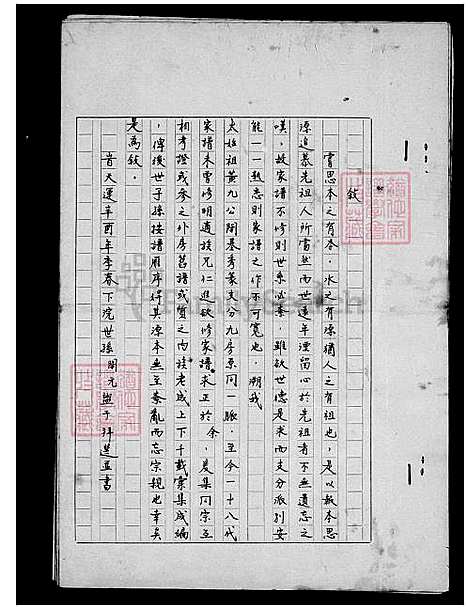 敘
嘗思本之有本，水之有源猶人之有祖也，是以報本思
源追慕先祖人所當然而世遠年湮留心於先祖者不無遺忘之
嘆，故家譜不修則世系必紊，雖欲世德是求而支分派別安
能一一熟志則家譜之作不可寬也，溯我
太始祖黃九公開基秀篆支分九房原同一脈，至今一十八代
家譜未曾修明適族兄仁進欲修家譜求正於余，爰集同宗互
相考證或參之外房舊譜或質之內族老成上下千載彙集成編
，俾後世子孫按譜雁序得其源本無至紊亂而忘宗親也幸矣
是為敘．
昔天運辛酉年季春下浣世孫開元盥手拜書